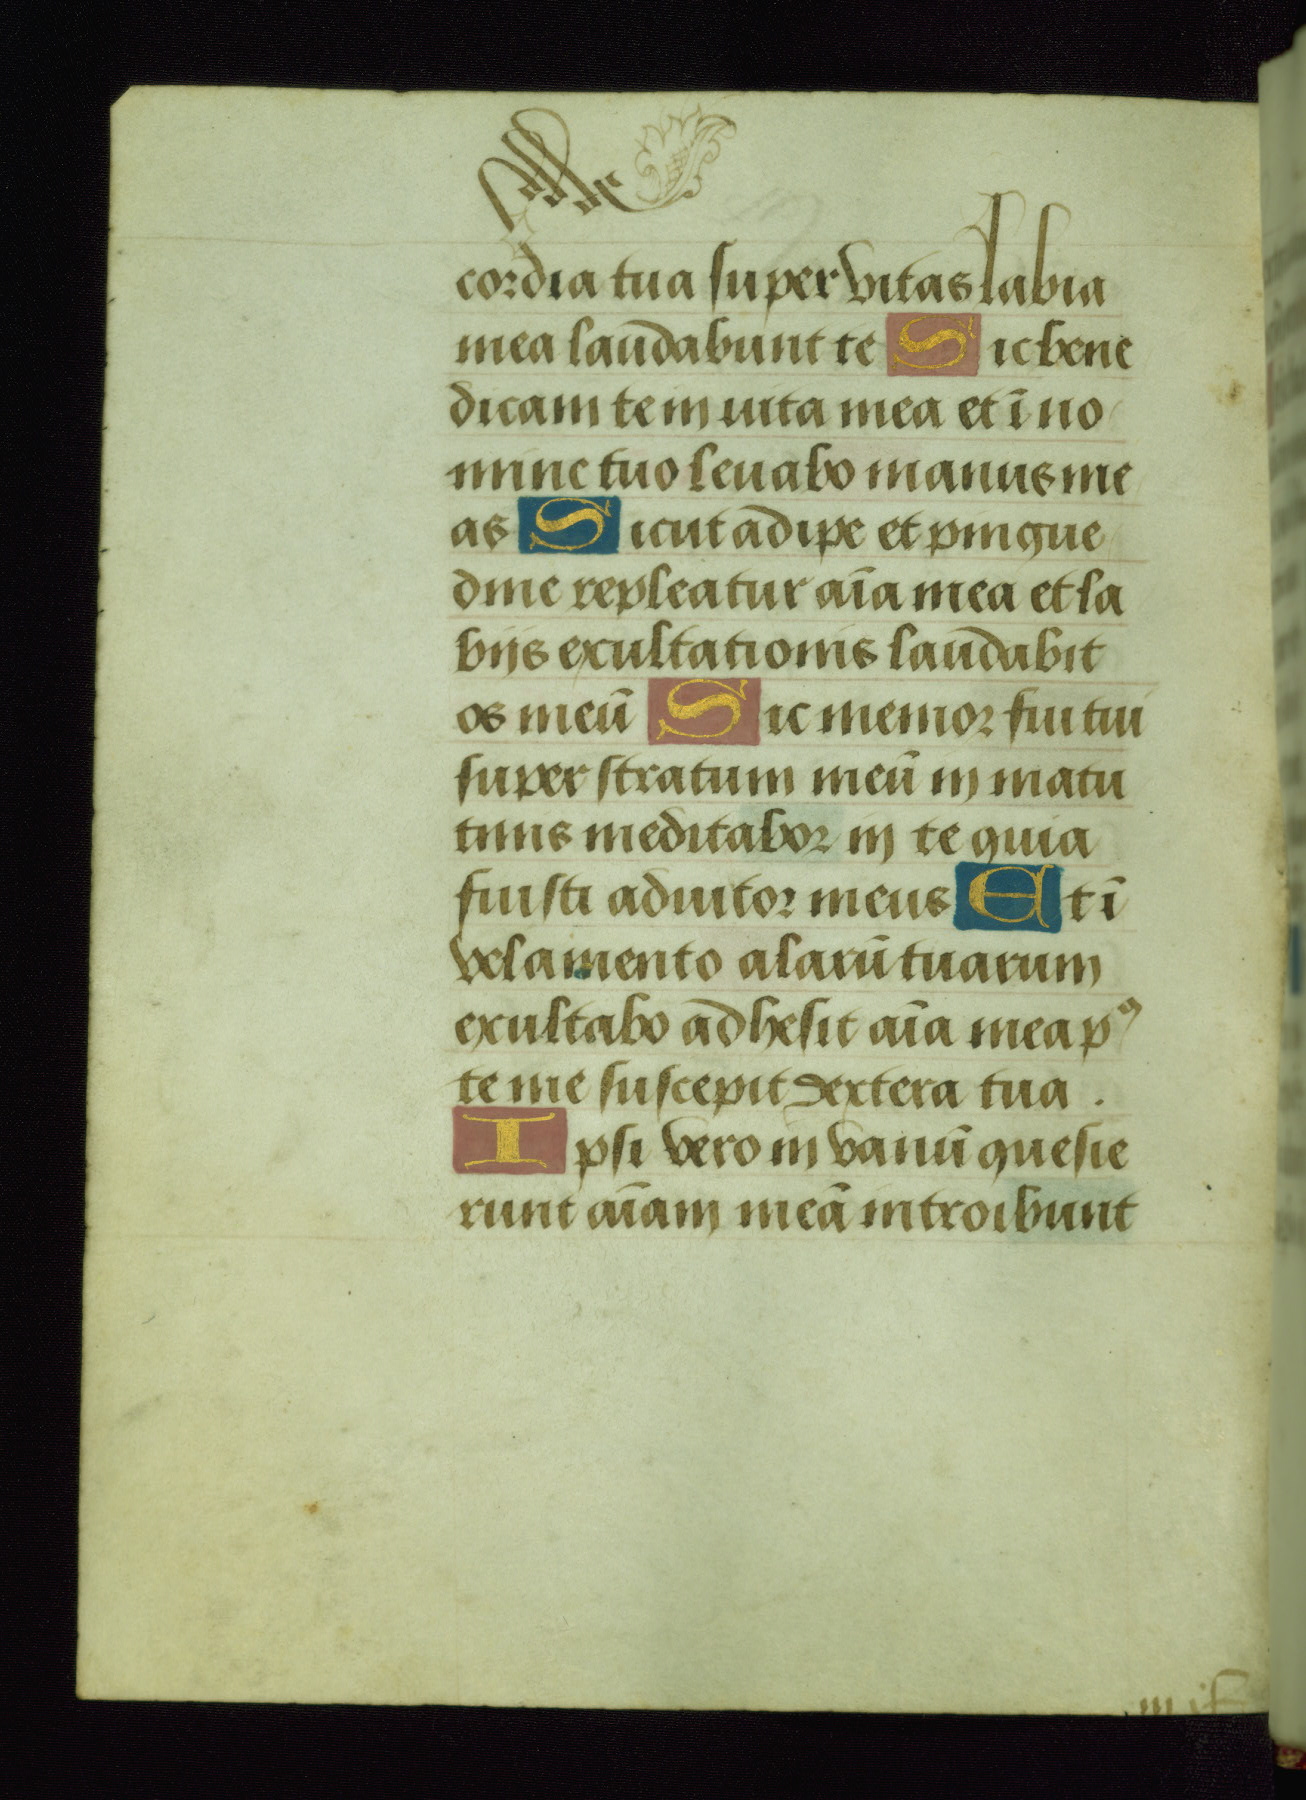 cordia tua super vitas labia
mea laudabunt te Sic bene
dicam te in uita mea et ī no
mine tuo leuabo manus me
as Sicut adipe et pingue
dine repleatur aīa mea et la
bijs exultationis laudabit
os meū Sic memor fui tui
super stratum meū in matu
tinis meditabor in te quia
fuisti adiutor meus Et ī
velamento alarū tuarum
exultabo adhesit aīa mea pꝰ
te me suscepit dextera tua .
Ipsi vero in vanū quesie
runt aīam meā introibunt